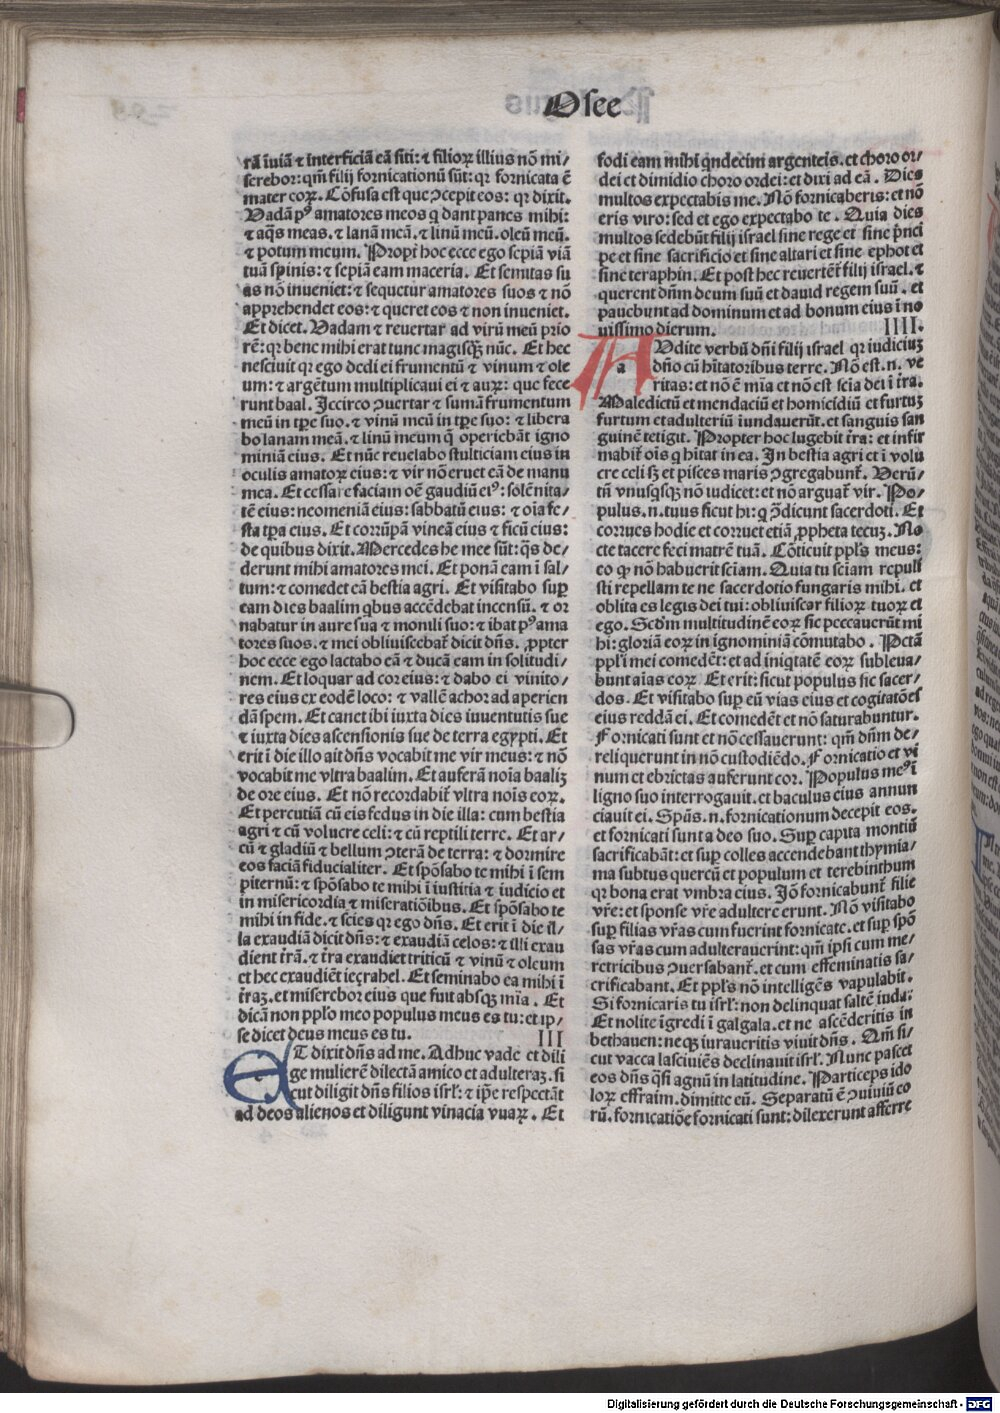 Osee
rā īuiā ⁊ interficiā eā siti: ⁊ filioꝝ illius nō mi/
serebor: qm̄ filij fornicationū sūt: qꝛ fornicata ē
mater eoꝝ. Cōfusa est que ↄcepit eos: qꝛ dixit.
Vadā pꝰ amatores meos q̄ dant panes mihi:
⁊ aq̄s meas. ⁊ lanā meā. ⁊ linū meū. oleū meū.
⁊ potum meum. Propt̄ hoc ecce ego sepiā viā
tuā spinis: ⁊ sepiā eam maceria. Et semitas su
as nō inueniet: ⁊ sequetur amatores suos ⁊ nō
apprehendet eos: ⁊ queret eos ⁊ non inueniet.
Et dicet. Vadam ⁊ reuertar ad virū meū prio
rē: qꝛ bene mihi erat tunc magisqꝫ nūc. Et hec
nesciuit qꝛ ego dedi ei frumentū ⁊ vinum ⁊ ole
um: ⁊ argētum multiplicaui ei ⁊ auꝝ: que fece
runt baal. Jccirco ↄuertar ⁊ sumā frumentum
meū in tpꝛe suo. ⁊ vinū meū in tpꝛe suo: ⁊ libera
bo lanam meā. ⁊ linū meum q̄ operiebāt igno
miniā eius. Et nūc reuelabo stulticiam eius in
oculis amatoꝝ eius: ⁊ vir nō eruet eā de manu
mea. Et cessare faciam oē gaudiū eiꝰ: solēnita/
tē eius: neomeniā eius: sabbatū eius: ⁊ oīa fe/
sta tp̄a eius. Et corrūpā vineā eius ⁊ ficū eius:
de quibus dixit. Mercedes he mee sūt: q̄s de/
derunt mihi amatores mei. Et ponā eam ī sal/
tum: ⁊ comedet eā bestia agri. Et visitabo suꝑ
eam dies baalim qbus accēdebat incensū. ⁊ or
nabatur in aure sua ⁊ monili suo: ⁊ ibat pꝰ ama
tores suos. ⁊ mei obliuiscebat̄ dicit dn̄s. ꝓpter
hoc ecce ego lactabo eā ⁊ ducā eam in solitudi/
nem. Et loquar ad cor eius: ⁊ dabo ei vinito/
res eius ex eodē loco: ⁊ vallē achor ad aperien
dā spem. Et canet ibi iuxta dies iuuentutis sue
⁊ iuxta dies ascensionis sue de terra egypti. Et
erit ī die illo ait dn̄s vocabit me vir meus: ⁊ nō
vocabit me vltra baalim. Et auferā noīa baaliꝫ
de ore eius. Et nō recordabit̄ vltra noīs eoꝝ.
Et percutiā cū eis fedus in die illa: cum bestia
agri ⁊ cū volucre celi: ⁊ cū reptili terre. Et ar/
cū ⁊ gladiū ⁊ bellum ↄterā de terra: ⁊ dormire
eos faciā fiducialiter. Et spōsabo te mihi ī sem
piternū: ⁊ spōsabo te mihi ī iustitia ⁊ iudicio et
in misericordia ⁊ miseratiōibus. Et spōsabo te
mihi in fide. ⁊ scies qꝛ ego dn̄s. Et erit ī die il/
la exaudiā dicit dn̄s: ⁊ exaudiā celos: ⁊ illi exau
dient t̄rā. ⁊ t̄ra exaudiet triticū ⁊ vinū ⁊ oleum
et hec exaudiēt ieçrahel. Et seminabo ea mihi ī
t̄raꝫ. et miserebor eius que fuit absqꝫ mīa. Et
dicā non pp̄lo meo populus meus es tu: et ip/
se dicet deus meus es tu. III
ET dixit dn̄s ad me. Adhuc vade et dili
ge mulierē dilectā amico et adulteraꝫ. si
cut diligit dn̄s filios isrl̄: ⁊ ip̄e respectāt
ad deos alienos et diligunt vinacia vuaꝝ. Et
fodi eam mihi q̄ndecim argenteis. et choro or/
dei et dimidio choro ordei: et dixi ad eā. Dies
multos expectabis me. Nō fornicaberis: et nō
eris viro: sed et ego expectabo te. Quia dies
multos sedebūt filij israel sine rege et sine p̄nci
pe et sine sacrificio et sine altari et sine ephot et
sine teraphin. Et post hec reuertēt̄ filij israel. ⁊
querent dn̄m deum suū et dauid regem suū. et
pauebunt ad dominum et ad bonum eius ī no
uissimo dierum. IIII.
AVdite verbū dn̄i filij israel qꝛ iudiciuꝫ
a dn̄o cū hītatoribus terre. Nō est .n. ve
ritas: et nō ē mīa et nō est scīa dei ī t̄ra.
Maledictū et mendaciū et homicidiū et furtuꝫ
furtum et adulteriū īundauerūt. et sanguis san
guinē tetigit. Propter hoc lugebit t̄ra: et infir
mabit̄ oīs q̄ hītat in ea. In bestia agri et ī volu
cre celi sꝫ et pisces maris ↄgregabunt̄. Verū/
tn̄ vnusqsqꝫ nō iudicet: et nō arguat̄ vir. Po/
pulus .n. tuus sicut hi: q̄ ↄ̄dicunt sacerdoti. Et
corrues hodie et corruet etiā ꝓpheta tecuꝫ. No
cte tacere feci matrē tuā. Cōticuit ppl̄s meus:
eo ꝙ nō habuerit sciam. Quia tu sciam repuli
sti repellam te ne sacerdotio fungaris mihi. et
oblita es legis dei tui: obliuiscar filioꝝ tuoꝝ et
ego. Scd̄m multitudinē eoꝝ sic peccauerūt mi
hi: gloriā eoꝝ in ignominiā cōmutabo. Pctā
ppl̄i mei comedēt: et ad iniqtatē eoꝝ subleua/
bunt aīas eoꝝ. Et erit: sicut populus sic sacer/
dos. Et visitabo suꝑ eū vias eius et cogitatōes
eius reddā ei. Et comedēt et nō saturabuntur.
Fornicati sunt et nō cessauerunt: qm̄ dn̄m de/
reliquerunt in nō custodiēdo. Fornicatio et vi
num et ebrietas auferunt cor. Populus meꝰ ī
ligno suo interrogauit. et baculus eius annun
ciauit ei. Spūs .n. fornicationum decepit eos.
et fornicati sunt a deo suo. Suꝑ capita montiū
sacrificabāt: et suꝑ colles accendebant thymia/
ma subtus quercū et populum et terebinthum
qꝛ bona erat vmbra eius. Jō fornicabunt̄ filie
vr̄e: et sponse vr̄e adultere erunt. Nō visitabo
suꝑ filias vr̄as cum fuerint fornicate. et suꝑ spō
sas vr̄as cum adulterauerint: qm̄ ipsi cum me/
retricibus ↄuersabant̄. et cum effeminatis sa/
crificabant. Et ppl̄s nō intelligēs vapulabit.
Si fornicaris tu isrl̄: non delinquat saltē iuda.
Et nolite īgredi ī galgala. et ne ascēderitis in
bethauen: neqꝫ iuraueritis viuit dn̄s. Qm̄ si/
cut vacca lasciuiēs declinauit isrl̄. Nunc pascet
eos dn̄s q̄si agnū in latitudine. Particeps ido
loꝝ effraim. dimitte eū. Separatū ē ↄuiuiū eo
rū. fornicatiōe fornicati sunt: dilexerunt afferre
Digitalisierung gefördert durch die Deutsche Forschungsgemeinschaft - DFG